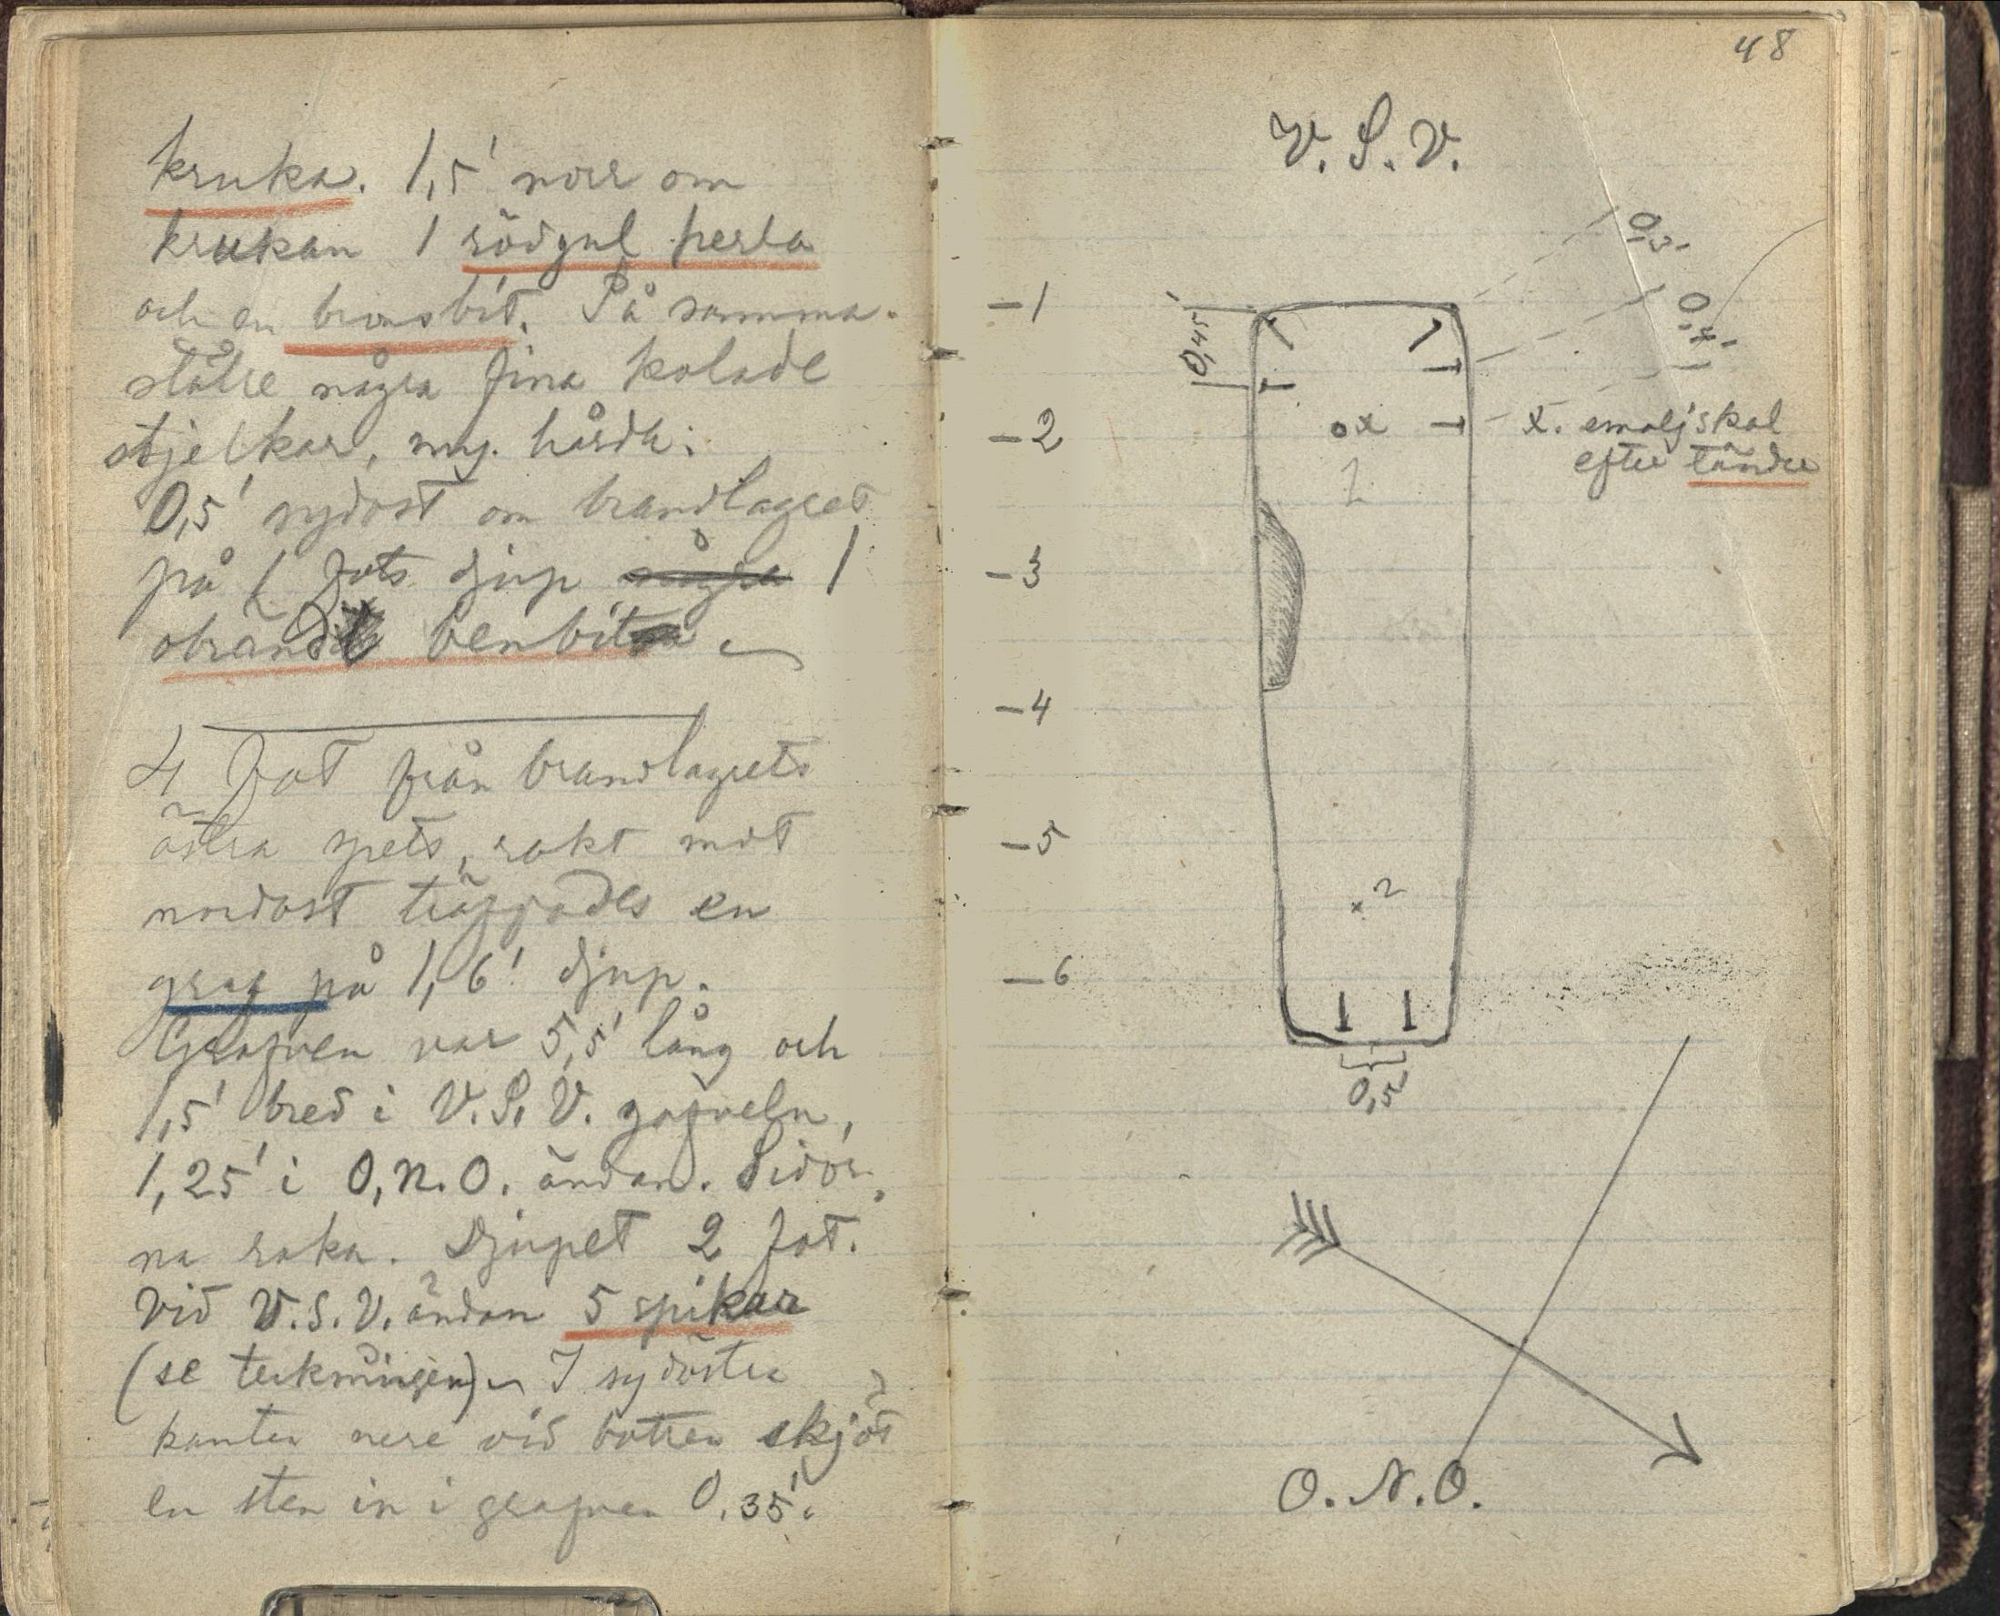 kruka. 1,5' norr om
krukan 1 rödgul perla
och en bronsbit. På samma
ställe några fina kolade
stjelkar, my. hårda.
0,5' sydost om brandlagret
på 1 fots djup några 1
obränd benbit
4 fot från brandlagrets
östra spets, rakt mot
nordost träffades en
graf på 1,6' djup.
Grafven var 5,5' lång och
1,5' bred i V.S.V. gafveln,
1,25' i O.N.O. ändan. Sidor
na raka. Djupet 2 fot.
Vid V.S.V. ändan 5 spikar
(se teckningen). I sydöstra
kanten nere vid botten sköt
en sten in i grafven 0,35'.
48
V.S.V.
0,3
0,4
0,45
-1
-2
-3
-4
-5
-6
x
1
x. emaljskal
efter tänder
x 2
0,5'
O.N.O.